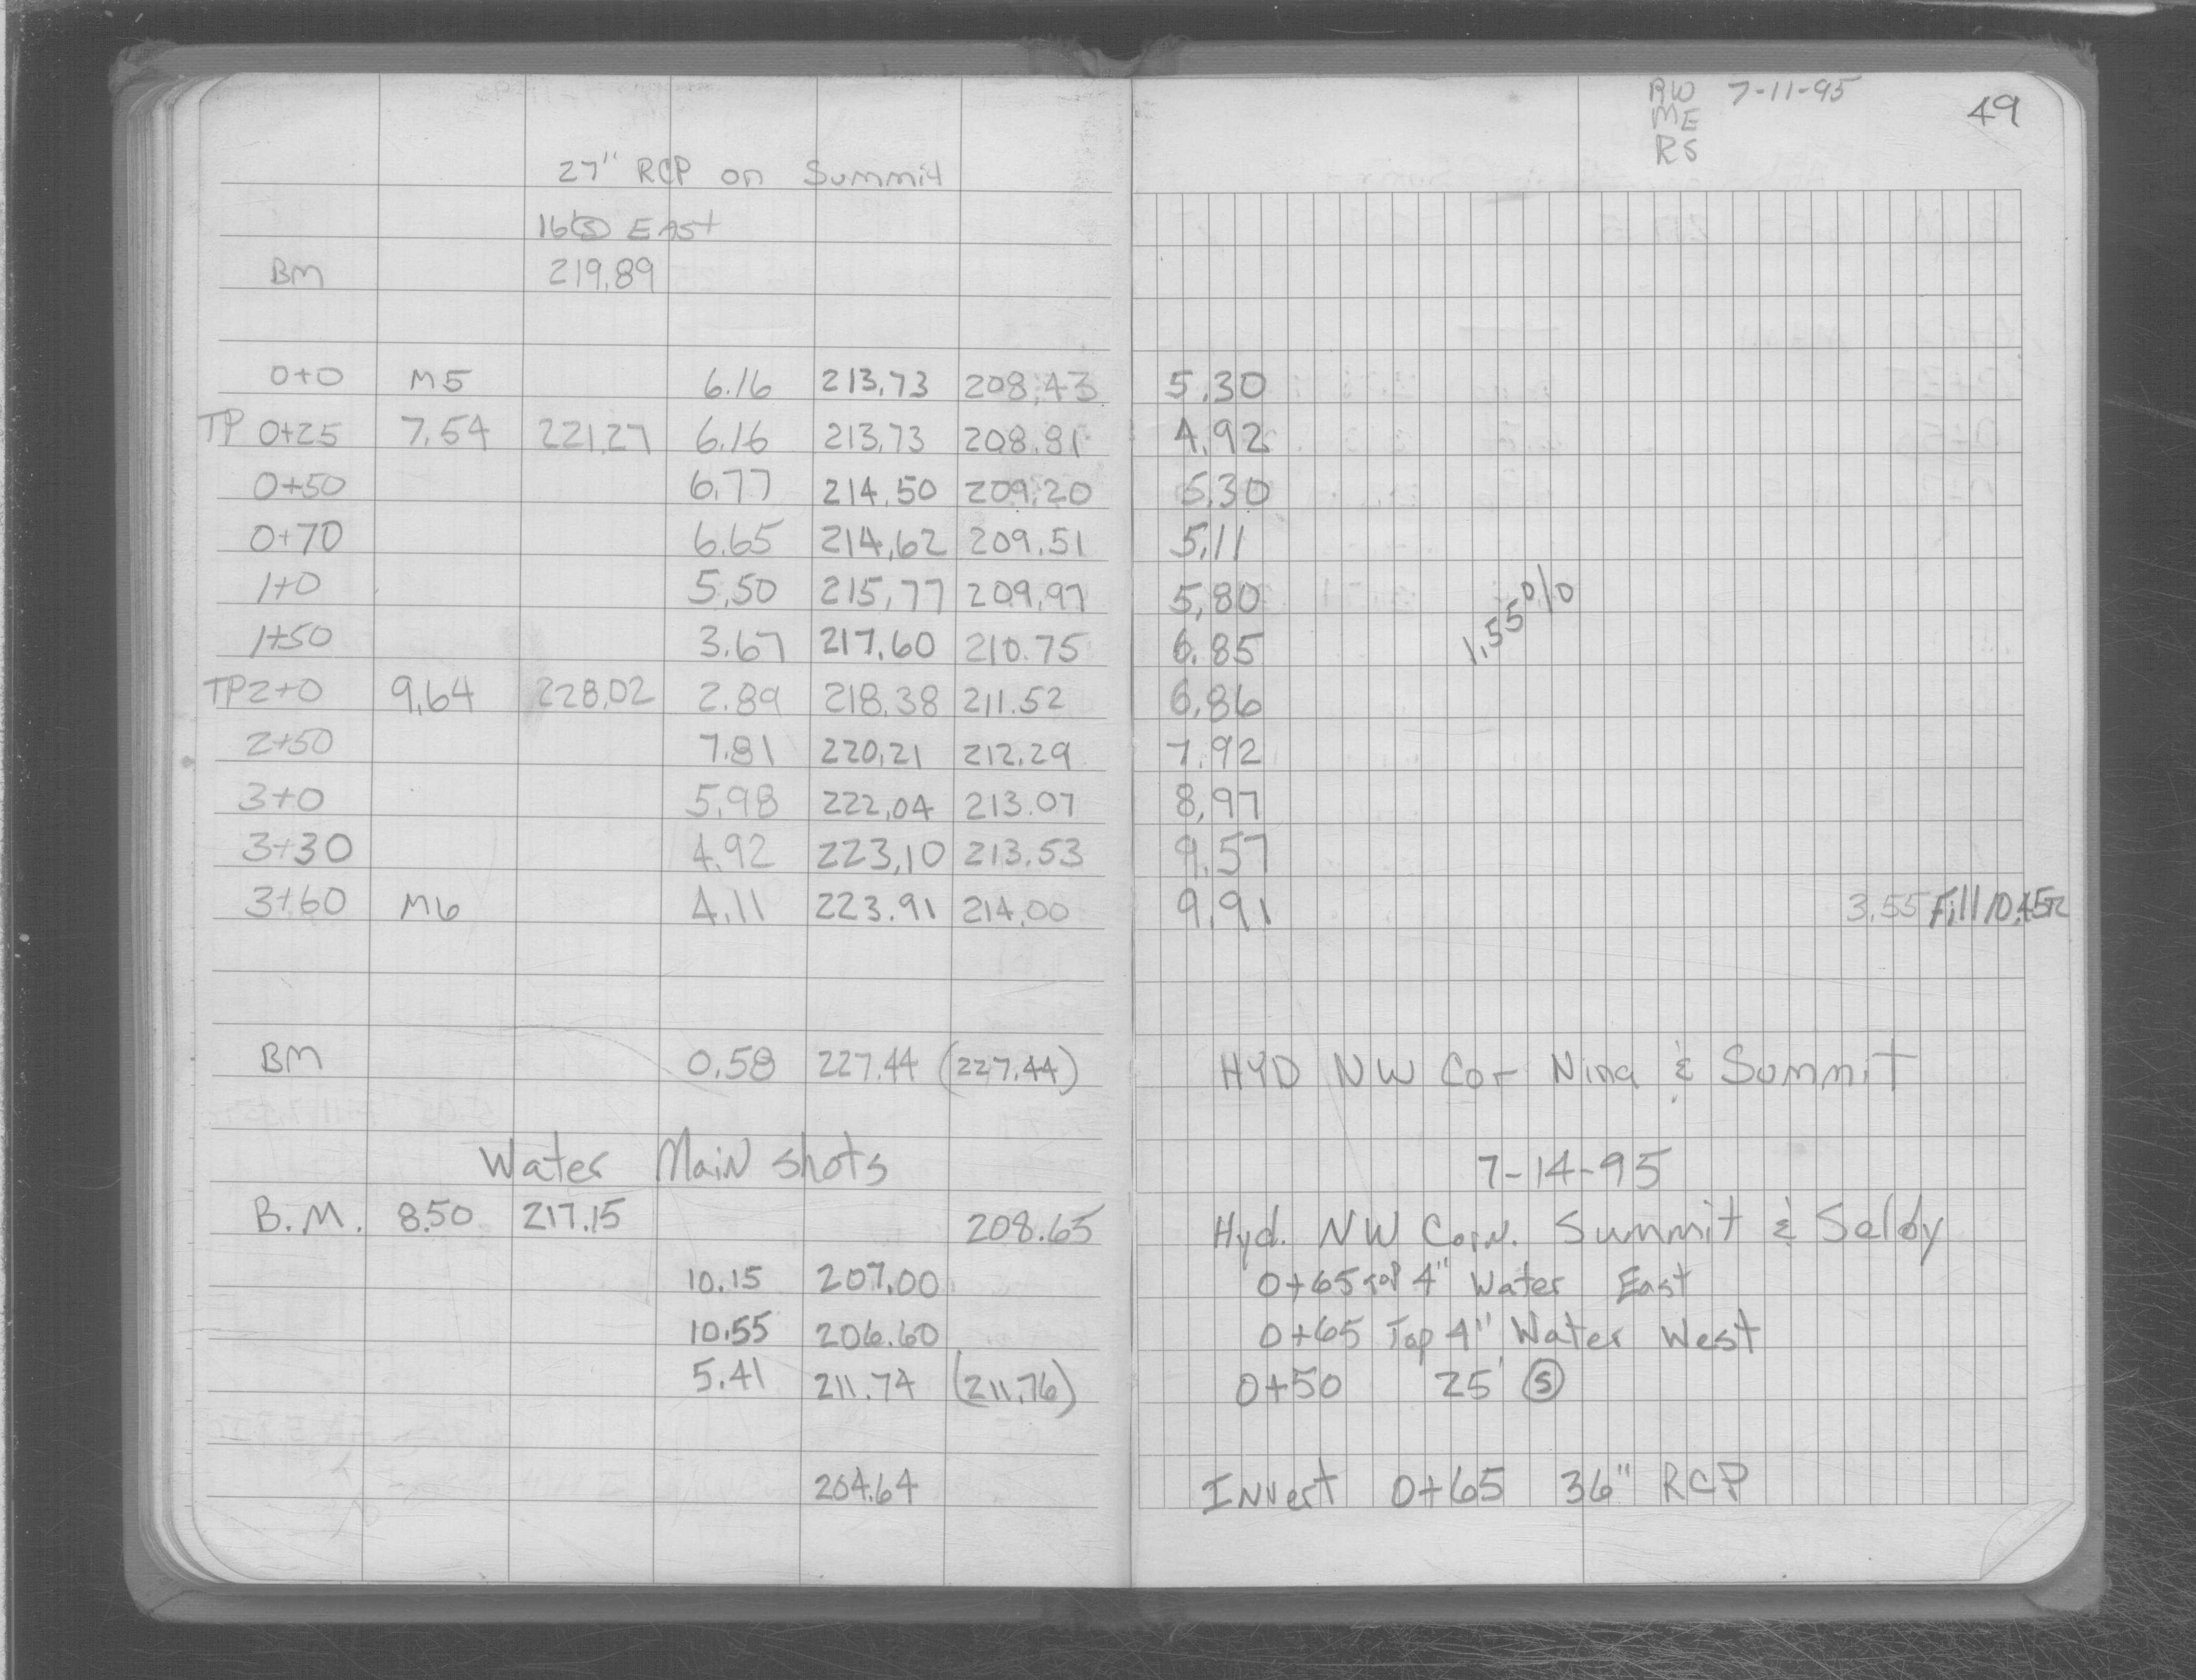 RW 7-11-95
ME
RS
49
27" RCP on Summit
16 Ⓢ EAST
BM 219.89
0+0 M5 6.16 213.73 208.43 5.30
TP 0+25 7.54 221.27 6.16 213.73 208.81 4.92
0+50 6.77 214.50 209.20 5.30
0+70 6.65 214.62 209.51 5.11
1+0 5.50 215.77 209.97 5.80
1.55%
1+50 3.67 217.60 210.75 6.85
TP 2+0 9.64 228.02 2.89 218.38 211.52 6.86
2+50 7.81 220.21 212.29 7.92
3+0 5.98 222.04 213.07 8.97
3+30 4.92 223.10 213.53 9.57
3+60 M6 4.11 223.91 214.00 9.91 3.55 Fill
BM 0.58 227.44 (227.44) HYD NW Cor Nina & Summit
Water Main shots 7-14-95
B.M. 8.50 217.15 208.65 Hyd. NW Corn. Summit & Selby
10.15 207.00 0+65 Top 4" Water East
10.55 206.60 0+65 Top 4" Water West
5.41 211.74 (211.76) 0+50 25' Ⓢ
204.64 Invert 0+65 36" RCP